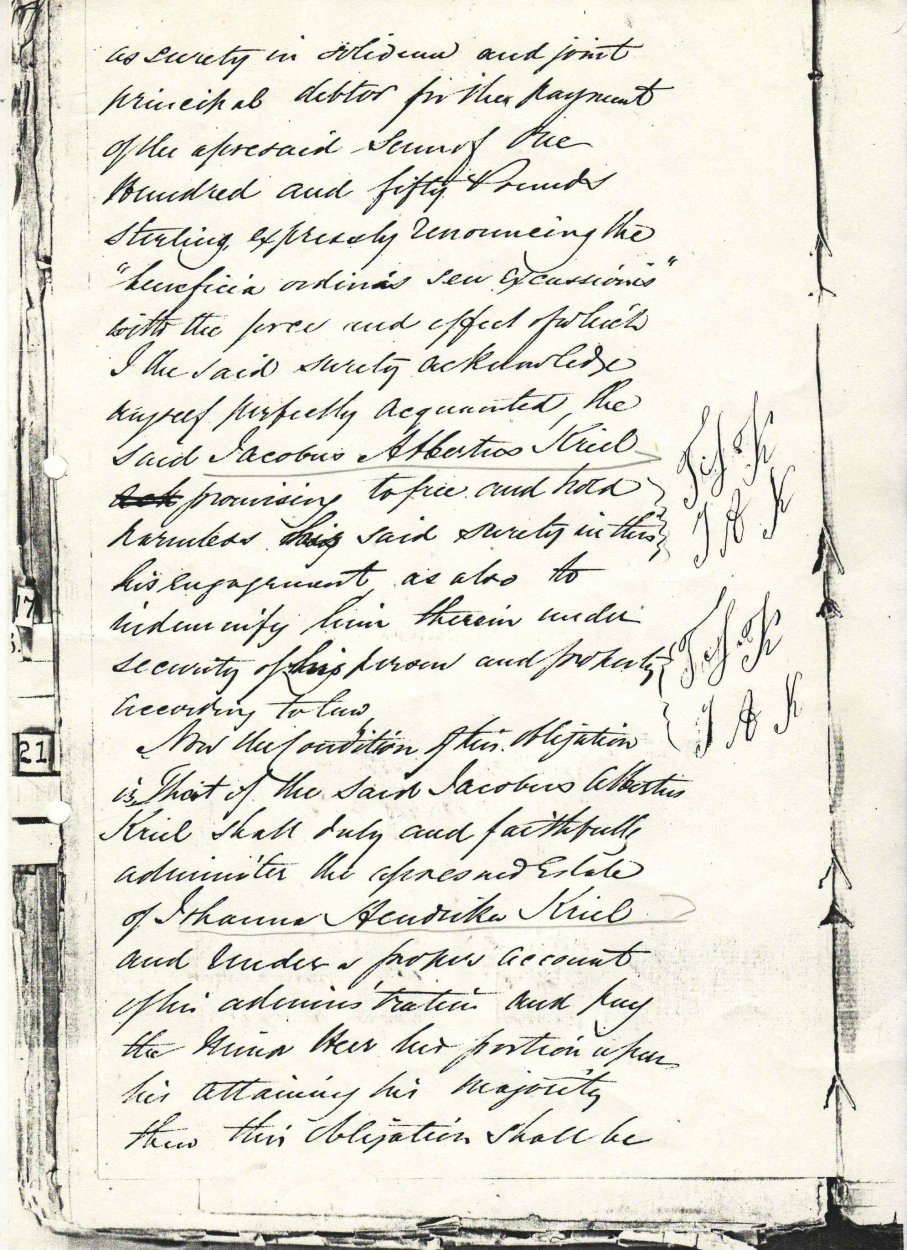 as surety in solidum and joint
principal debtor for the payment
of the aforesaid Sum of One
Hundred and fifty Pounds
Sterling, expressly renouncing the
"beneficia ordinis seu excussionis"
with the force and effect of which
I the said surety acknowledge
myself perfectly acquainted, the
said Jacobus Albertus Kriel
promising to free and hold
harmless his said surety in this
his engagement, as also to
indemnify him therein under
security of his person and property
according to law
Now the Condition of this obligation
is, That if the said Jacobus Albertus
Kriel shall duly and faithfully
administer the aforesaid Estate
of Johanna Hendrika Kriel
and render a proper account
of his administration and pay
the Minor Heir his portion upon
his attaining his majority
then this obligation shall be
J A K
J A K
17
21